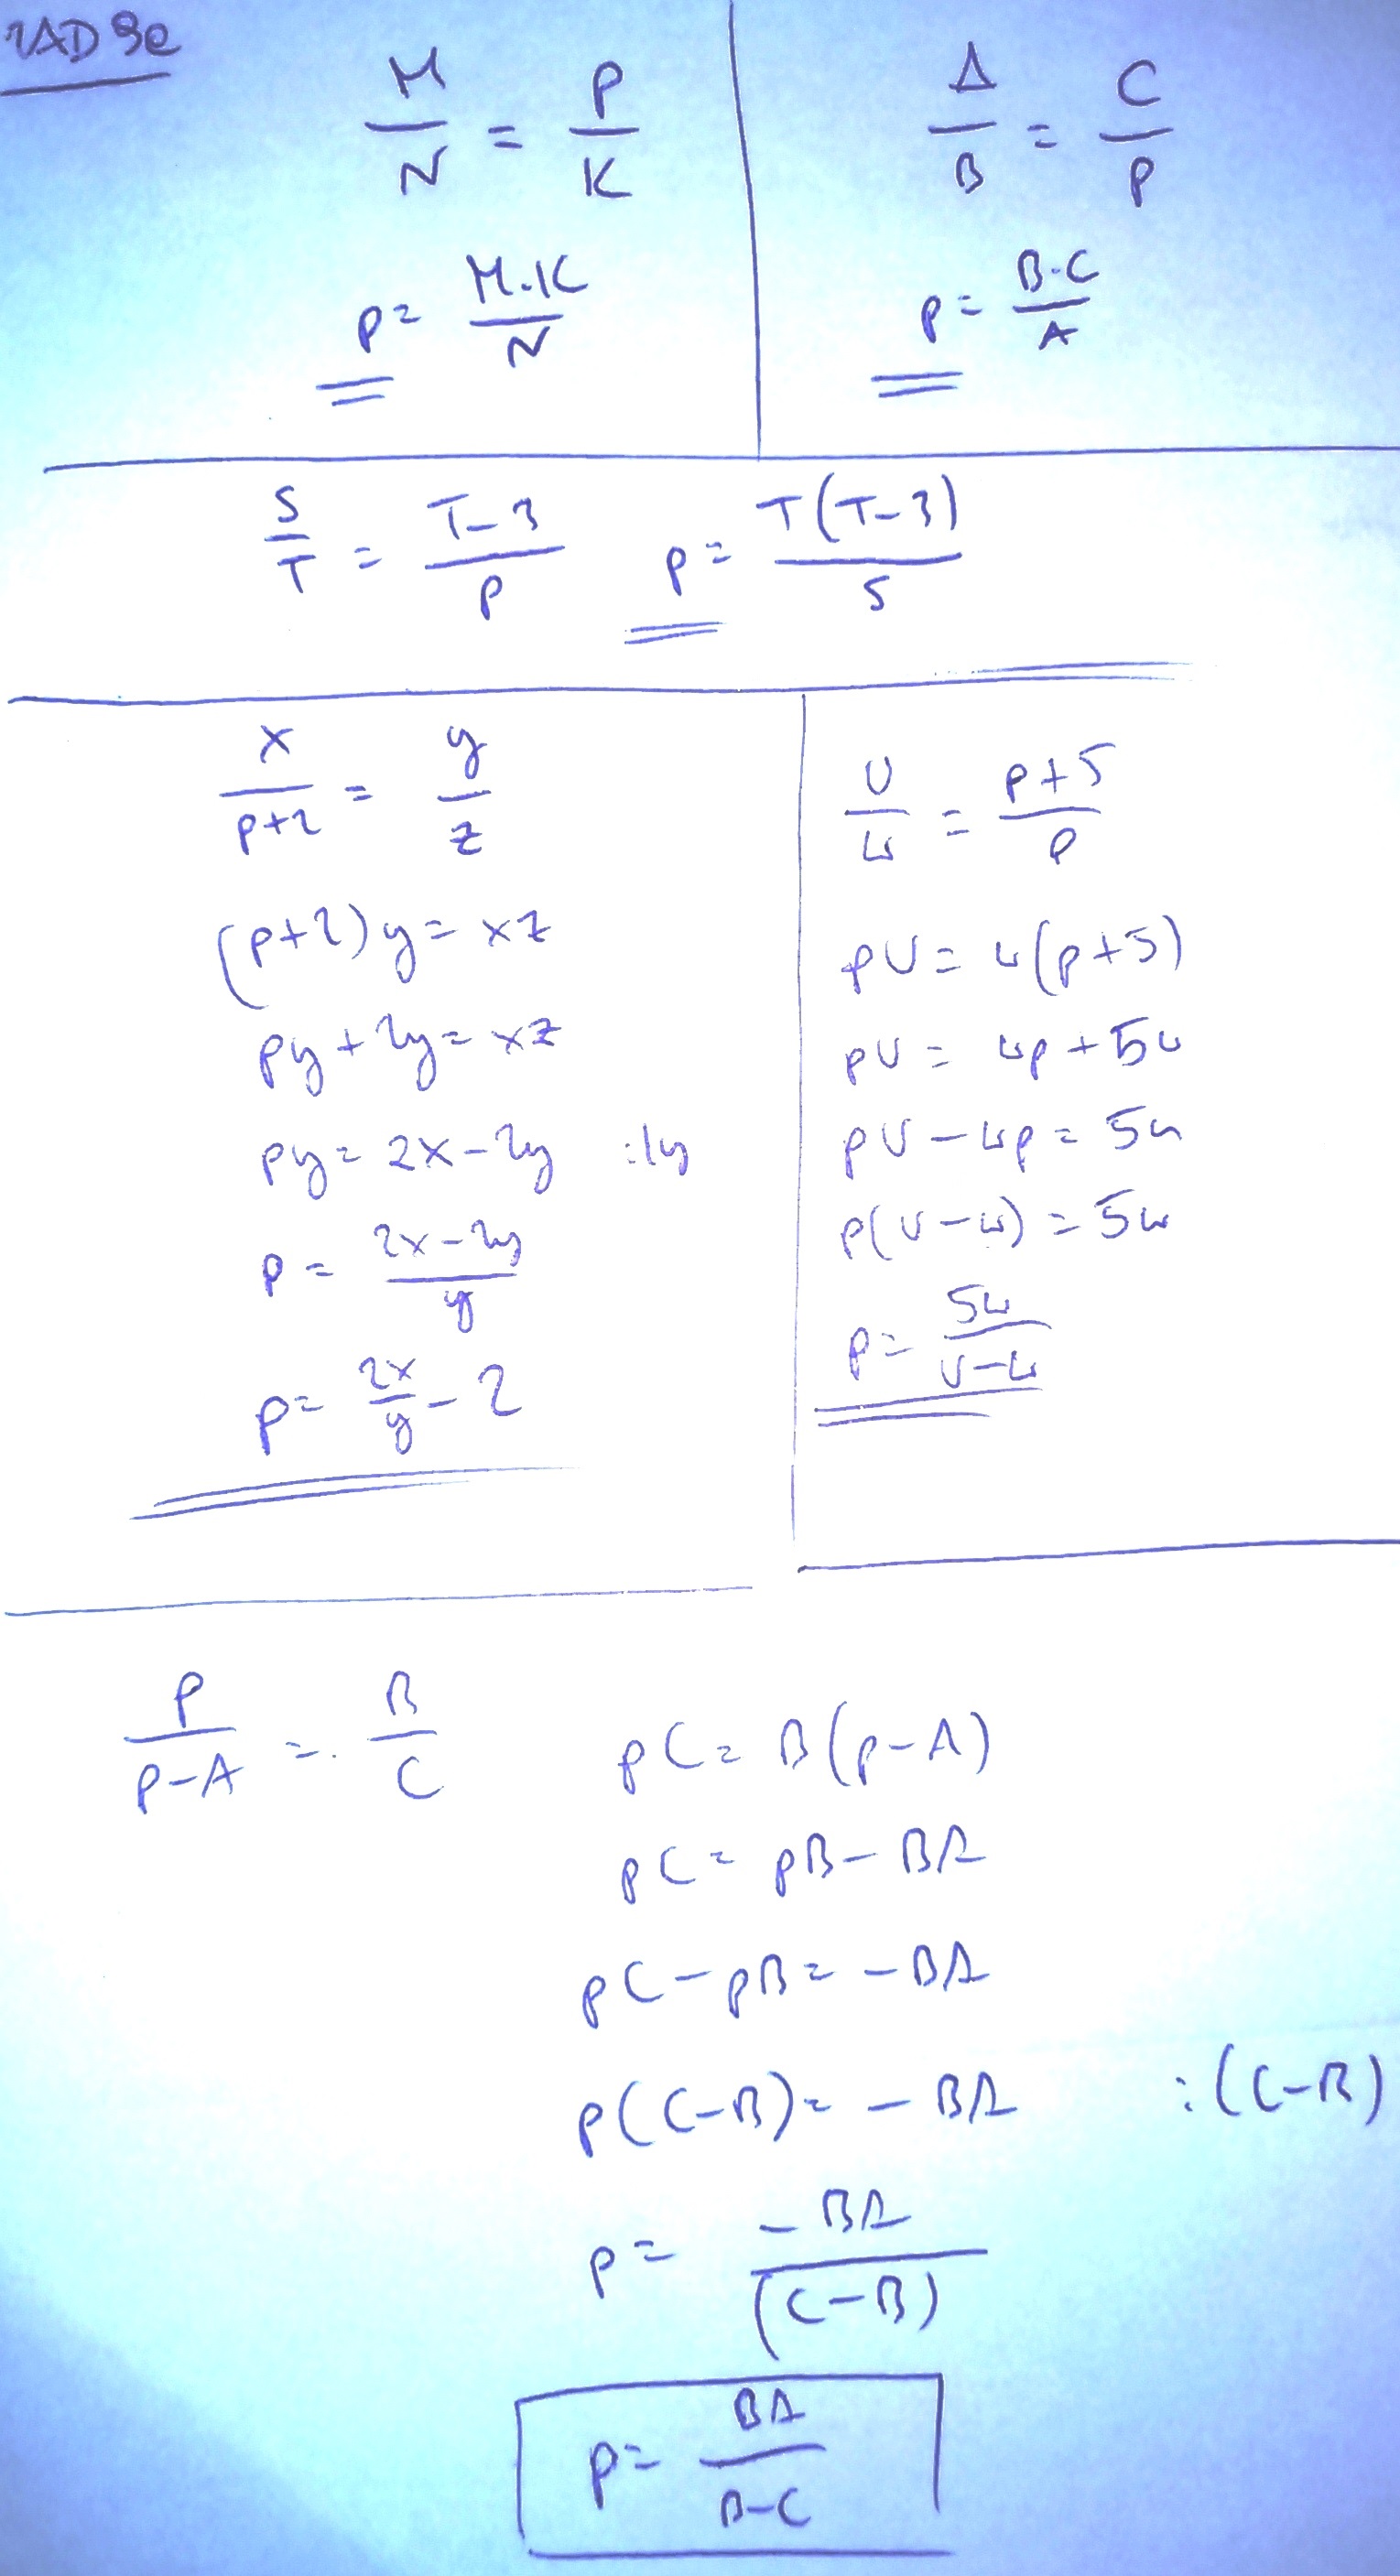 M/N = P/K
P = M·K/N
A/B = C/P
P = B·C/A
S/T = T-3/P P = T(T-3)/S
x/p+2 = y/z
(p+2)y = xz
py + 2y = xz
py = zx - 2y :/y
p = zx-2y/y
p = zx/y - 2
U/W = P+5/P
pU = w(p+5)
pU = wp + 5w
pU - wp = 5w
p(U-w) = 5w
p = 5w/U-w
P/P-A = B/C
pC = B(p-A)
pC = pB - BA
pC - pB = -BA
p(C-B) = -BA :(C-B)
p = -BA/(C-B)
p = BA/B-C